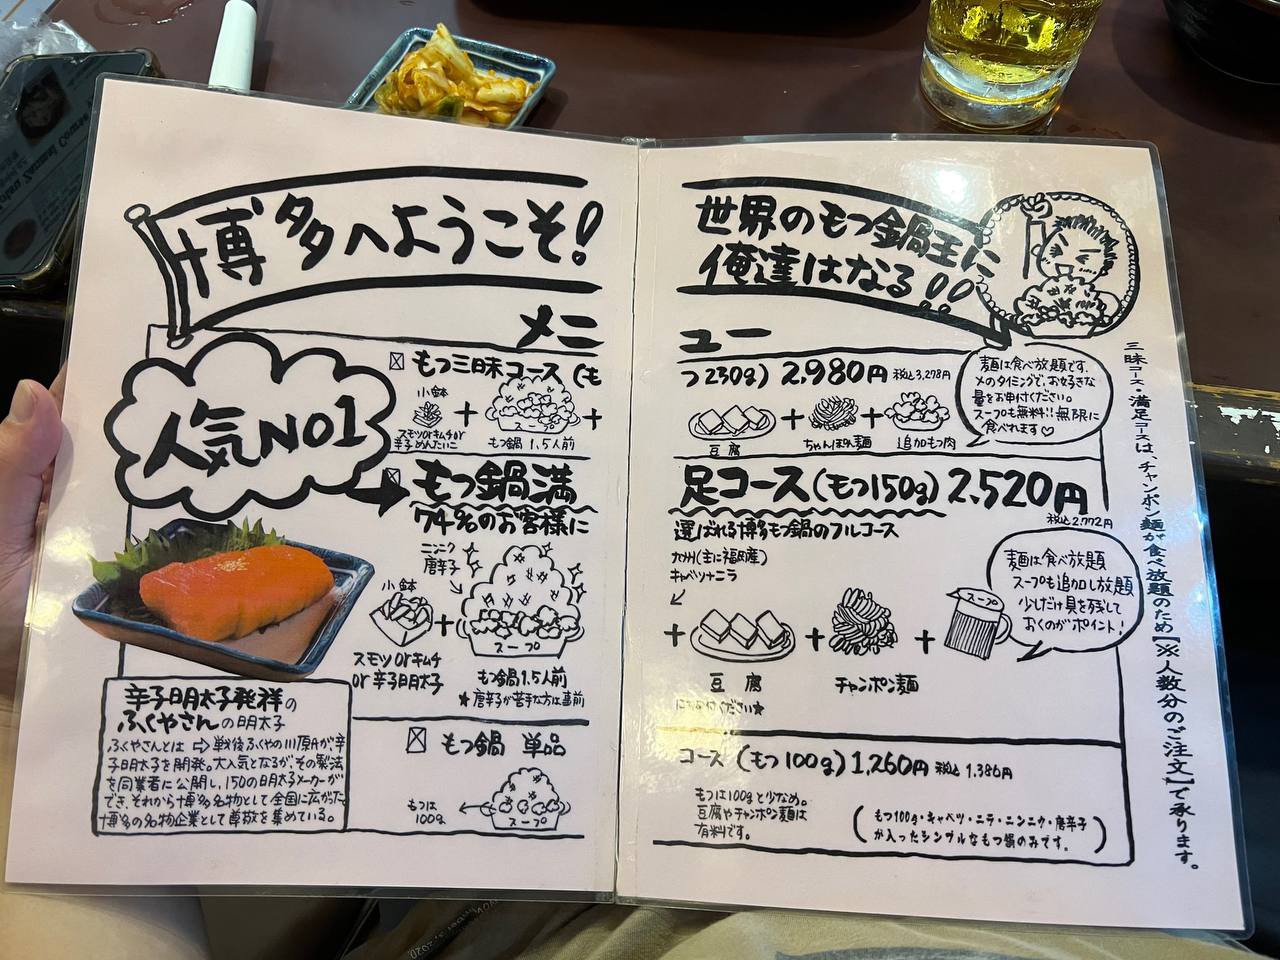 博多へようこそ!
世界のもつ鍋王に
俺達はなる!!
メニュー
人気NO1
もつ三昧コース(もつ230g) 2,980円 税込3,278円
小鉢
スモツorキムチor
辛子めんたいこ
もつ鍋 1.5人前
豆腐
ちゃんぽん麺
追加もつ肉
麺は食べ放題です。
〆のタイミングで、お好きな
量をお申付ください。
スープも無料!!無限に
食べれます♡
もつ鍋満足コース(もつ150g) 2,520円
税込2,772円
74%のお客様に選ばれる博多もつ鍋のフルコース
ニンニク
唐辛子
九州(主に福岡産)
キャベツ+ニラ
小鉢
スモツ or キムチ
or 辛子明太子
スープ
もつ鍋1.5人前
★唐辛子が苦手な方は事前
ください★
豆腐
チャンポン麺
スープ
麺は食べ放題
スープも追加し放題
少しだけ具を残して
おくのがポイント!
もつ鍋 単品コース(もつ100g) 1,260円 税込1,386円
もつは
100g
スープ
もつは100gと少なめ。
豆腐やチャンポン麺は
有料です。
(もつ100g・キャベツ・ニラ・ニンニク・唐辛子
が入ったシンプルなもつ鍋のみです。)
辛子明太子発祥の
ふくやさんの明太子
ふくやさんとは⇨戦後ふくやの川原氏が、辛
子明太子を開発。大人気となるが、その製法
を同業者に公開し、150の明太子メーカーが
でき、それから博多名物として全国に広がった
博多の名物企業として尊敬を集めている。
三昧コース・満足コースは、チャンポン麺が食べ放題のため【※人数分のご注文】で承ります。